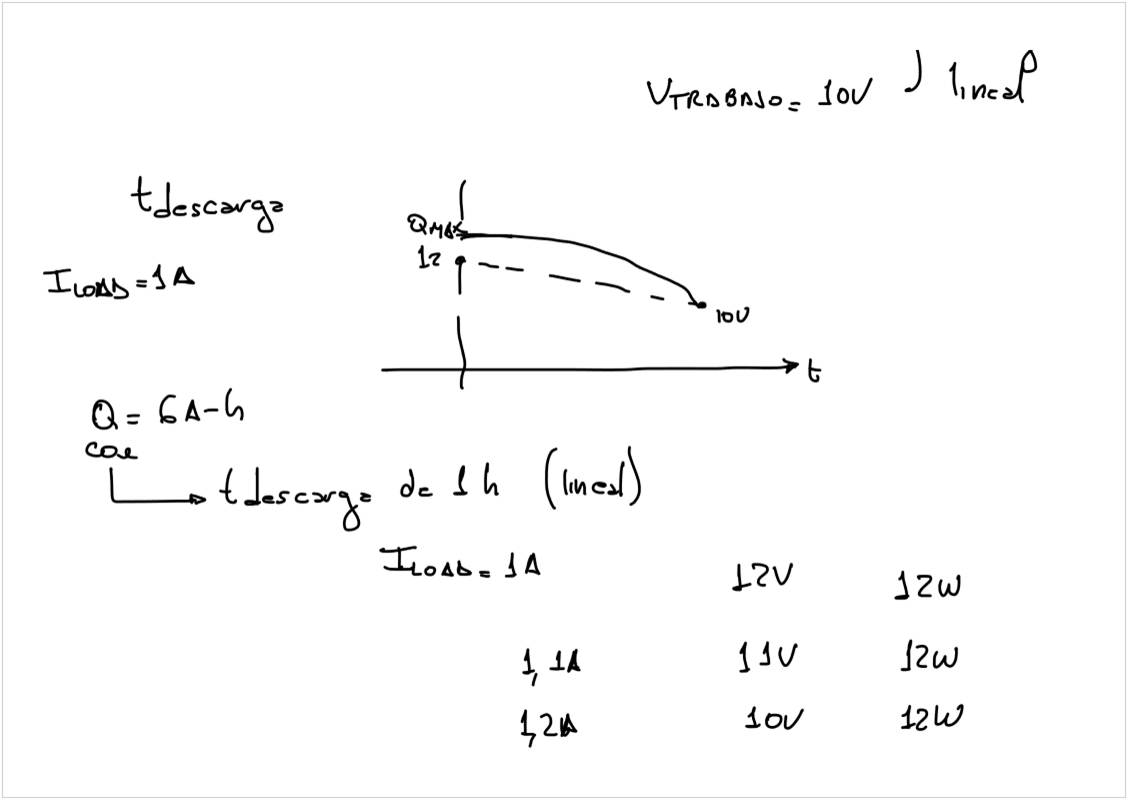 VTRABAJO = 10V lineal
tdescarga
QMAX
12
ILOAD = 1A
10V
t
Q = 6A-h
t descarga de 1h (lineal)
ILOAD = 1A 12V 12W
1,1A 11V 12W
1,2A 10V 12W